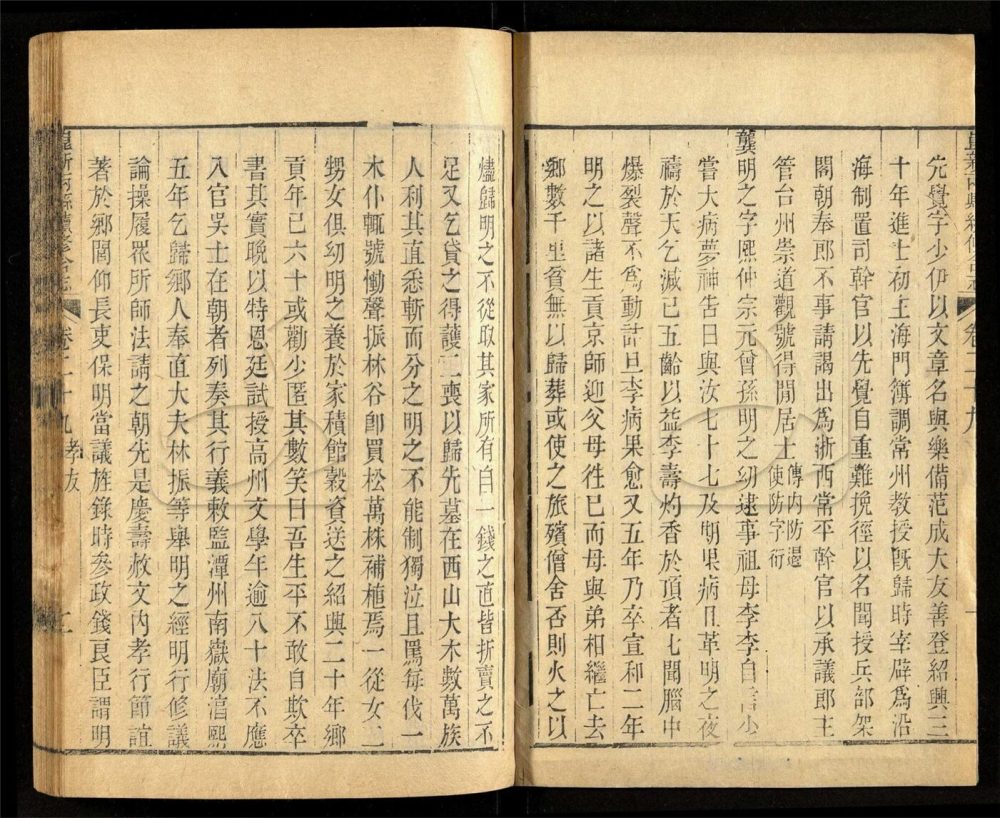 先覺字少伊以文章名與樂備范成大友善登紹興三
十年進士初主海門簿調常州教授旣歸時宰辟爲沿
海制置司幹官以先覺自重難挽徑以名聞授兵部架
閣朝奉郎不事請謁出爲浙西常平幹官以承議郎主
管台州崇道觀號得閒居士傳内防遏使防字衍
龔明之字熙仲宗元曾孫明之幼逮事祖母李李自言少
嘗大病夢神告曰與汝七十七及期果病且革明之夜
禱於天乞減已五齡以益李壽灼香於頂者七聞腦中
爆裂聲不爲動詰旦李病果愈又五年乃卒宣和二年
明之以諸生貢京師迎父母徃已而母與弟相繼亡去
鄉數千里貧無以歸葬或使之旅殯僧舍否則火之以
燼歸明之不從取其家所有自一錢之直皆折賣之不
足又乞貸之得護二喪以歸先墓在西山大木數萬族
人利其直悉斬而分之明之不能制獨泣且罵每伐一
木仆輒號慟聲振林谷卽買松萬株補植焉一從女二
甥女俱幼明之養於家積館穀資送之紹興二十年鄉
貢年已六十或勸少匿其數笑曰吾生平不敢自欺卒
書其實晚以特恩廷試授高州文學年逾八十法不應
入官吳士在朝者列奏其行義敕監潭州南嶽廟淳熙
五年乞歸鄉人奉直大夫林振等舉明之經明行修議
論操履衆所師法請之朝先是慶壽赦文内孝行節誼
著於鄉閭仰長吏保明當議旌錄時參政錢良臣謂明
崑新兩縣續修合志
卷二十九 孝友
二